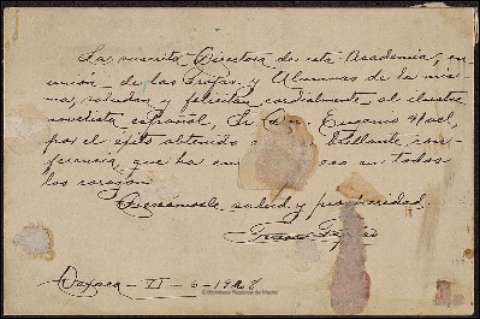 La suscrita Directora de esta Academia, en
unión de las Profas. y Alumnas de la mis-
ma, saludan y felicitan cordialmente al ilustre
novelista español, Sr. Dn. Eugenio Noel,
por el éxito obtenido brillante con-
ferencia, que ha en todos
los corazon
Deseámosle salud y prosperidad.
Oaxaca - VI - 6 - 1928
© Biblioteca Regional de Madrid